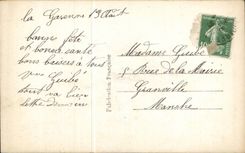 la Garenne 13 Aout
bonne fête
et bonne santé
bons baisers à tous
va bien
Fabrication Française
Madame Guibé
8 Rue de la Mairie
Granville
Manche